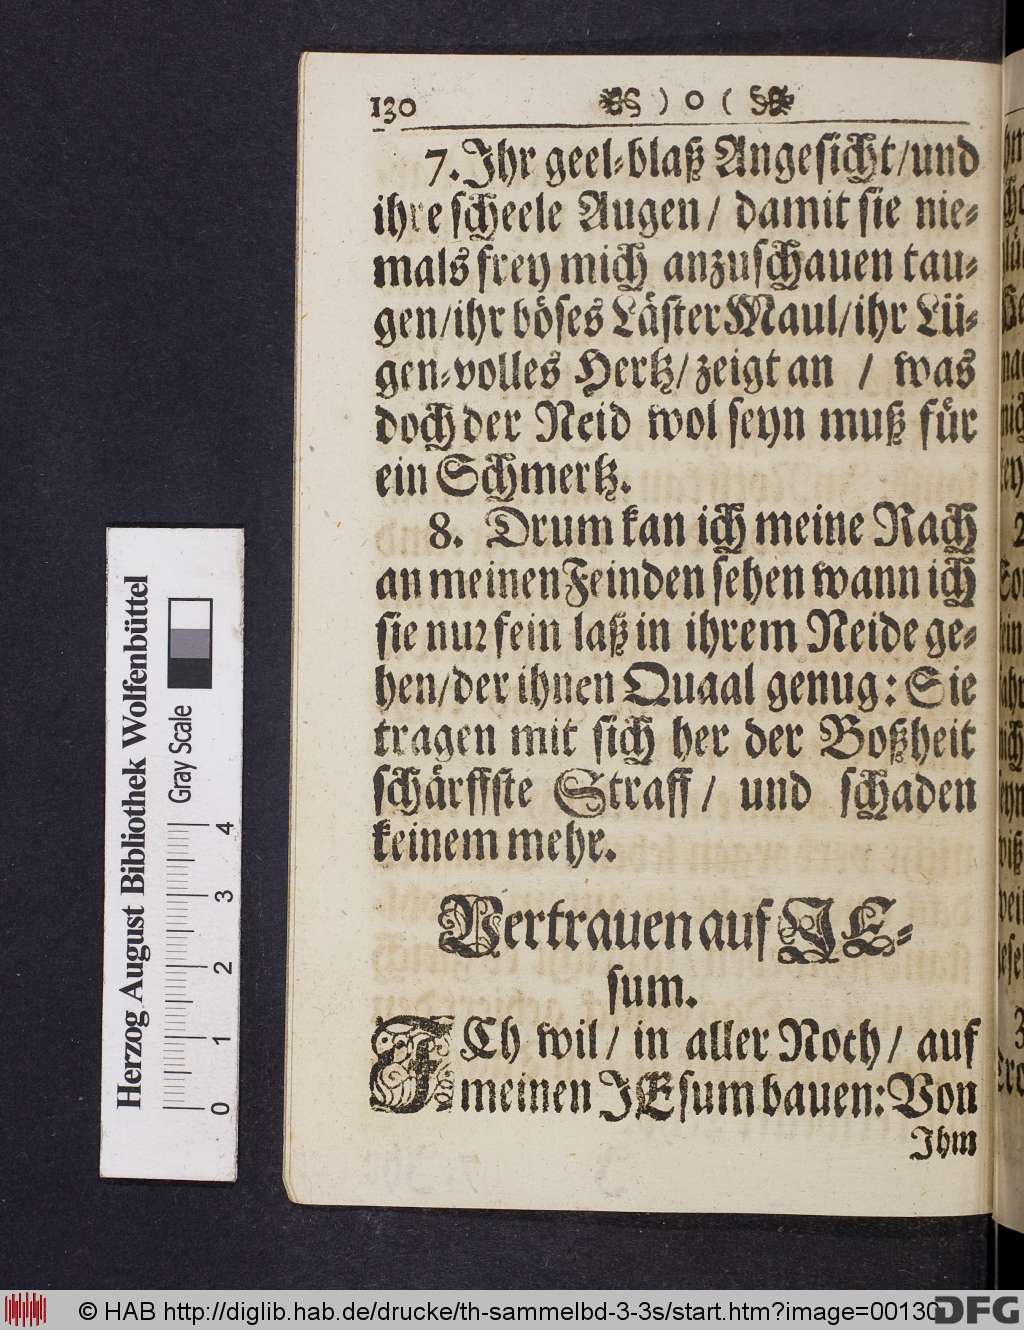 130 ) o (
7. Ihr geel-blaß Angesicht/und
ihre scheele Augen/ damit sie nie-
mals frey mich anzuschauen tau-
gen/ihr böses Läster Maul/ihr Lü-
gen-volles Hertz/zeigt an / was
doch der Neid wol seyn muß für
ein Schmertz.
8. Drum kan ich meine Rach
an meinen Feinden sehen wann ich
sie nur fein laß in ihrem Neide ge-
hen/der ihnen Quaal genug: Sie
tragen mit sich her der Boßheit
schärffste Straff/ und schaden
keinem mehr.
Vertrauen auf JE-
sum.
ICh wil/ in aller Noth/ auf
meinen JEsum bauen: Von
Ihm
Herzog August Bibliothek Wolfenbüttel
Gray Scale
0 1 2 3 4
© HAB http://diglib.hab.de/drucke/th-sammelbd-3-3s/start.htm?image=00130
DFG